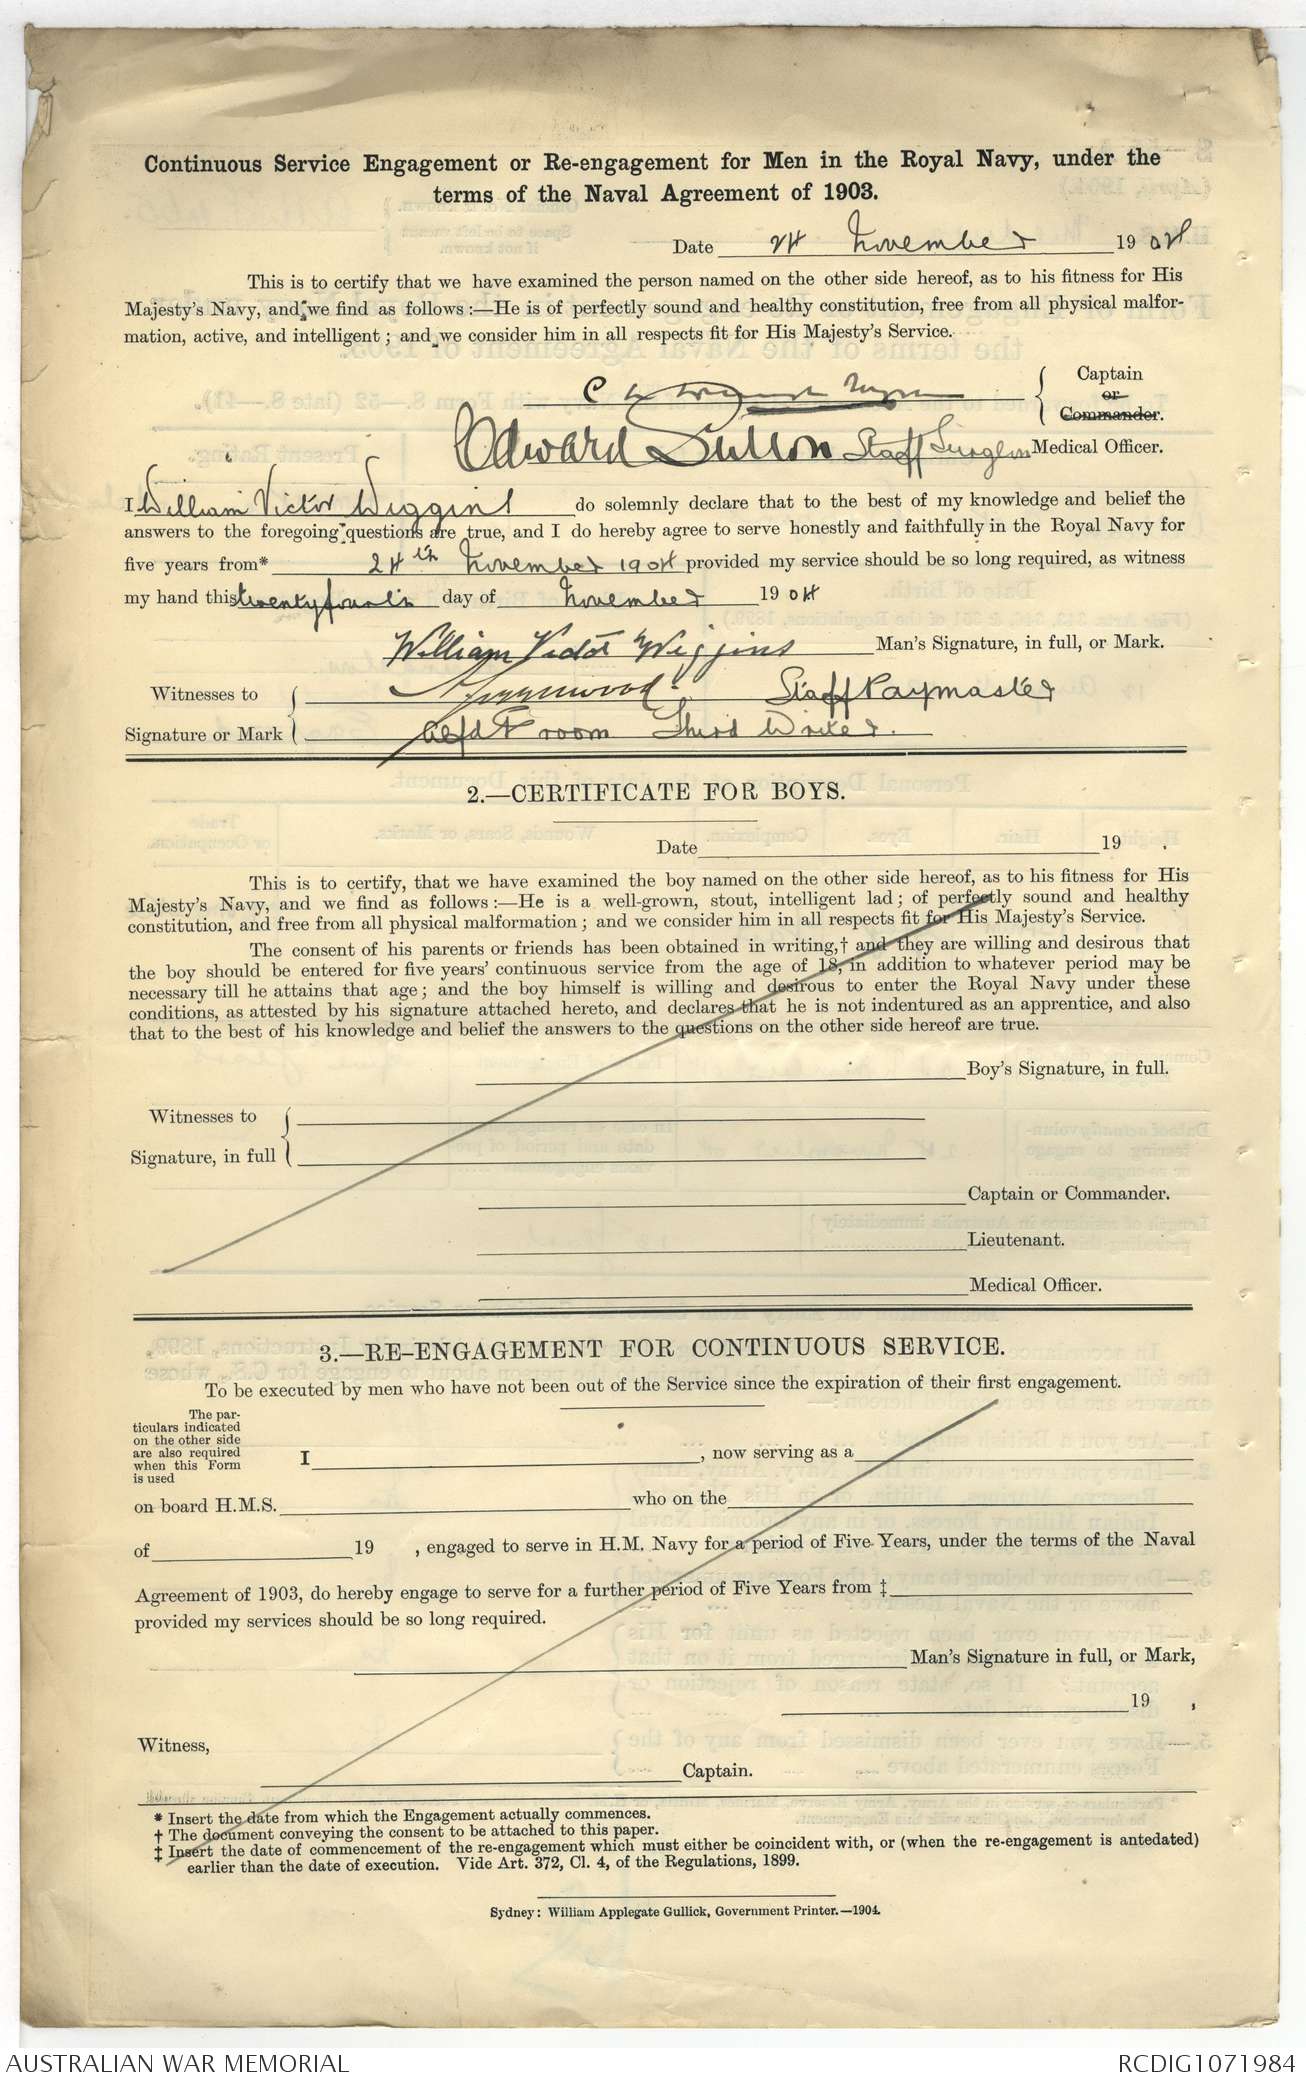 Continuous Service Engagement or Re-engagement for Men in the Royal Navy, under the
terms of the Naval Agreement of 1903.
Date 24 November 1904
This is to certify that we have examined the person named on the other side hereof, as to his fitness for His
Majesty's Navy, and we find as follows:—He is of perfectly sound and healthy constitution, free from all physical malfor-
mation, active, and intelligent; and we consider him in all respects fit for His Majesty's Service.
Captain
or
Commander.
Edward Sutton Staff Surgeon Medical Officer.
I William Victor Wiggins do solemnly declare that to the best of my knowledge and belief the
answers to the foregoing questions are true, and I do hereby agree to serve honestly and faithfully in the Royal Navy for
five years from* 24th November 1904 provided my service should be so long required, as witness
my hand this twentyfourth day of November 1904
William Victor Wiggins Man's Signature, in full, or Mark.
Witnesses to
Staff Paymaster
Signature or Mark
Third Writer.
2.—CERTIFICATE FOR BOYS.
Date 19 .
This is to certify, that we have examined the boy named on the other side hereof, as to his fitness for His
Majesty's Navy, and we find as follows:—He is a well-grown, stout, intelligent lad; of perfectly sound and healthy
constitution, and free from all physical malformation; and we consider him in all respects fit for His Majesty's Service.
The consent of his parents or friends has been obtained in writing,† and they are willing and desirous that
the boy should be entered for five years' continuous service from the age of 18, in addition to whatever period may be
necessary till he attains that age; and the boy himself is willing and desirous to enter the Royal Navy under these
conditions, as attested by his signature attached hereto, and declares that he is not indentured as an apprentice, and also
that to the best of his knowledge and belief the answers to the questions on the other side hereof are true.
Boy's Signature, in full.
Witnesses to
Signature, in full
Captain or Commander.
Lieutenant.
Medical Officer.
3.—RE-ENGAGEMENT FOR CONTINUOUS SERVICE.
To be executed by men who have not been out of the Service since the expiration of their first engagement.
The par-
ticulars indicated
on the other side
are also required
when this Form
is used
I , now serving as a
on board H.M.S. who on the
of 19 , engaged to serve in H.M. Navy for a period of Five Years, under the terms of the Naval
Agreement of 1903, do hereby engage to serve for a further period of Five Years from ‡
provided my services should be so long required.
Man's Signature in full, or Mark,
19 ,
Witness,
Captain.
* Insert the date from which the Engagement actually commences.
† The document conveying the consent to be attached to this paper.
‡ Insert the date of commencement of the re-engagement which must either be coincident with, or (when the re-engagement is antedated)
earlier than the date of execution. Vide Art. 372, Cl. 4, of the Regulations, 1899.
Sydney: William Applegate Gullick, Government Printer.—1904.
AUSTRALIAN WAR MEMORIAL
RCDIG1071984